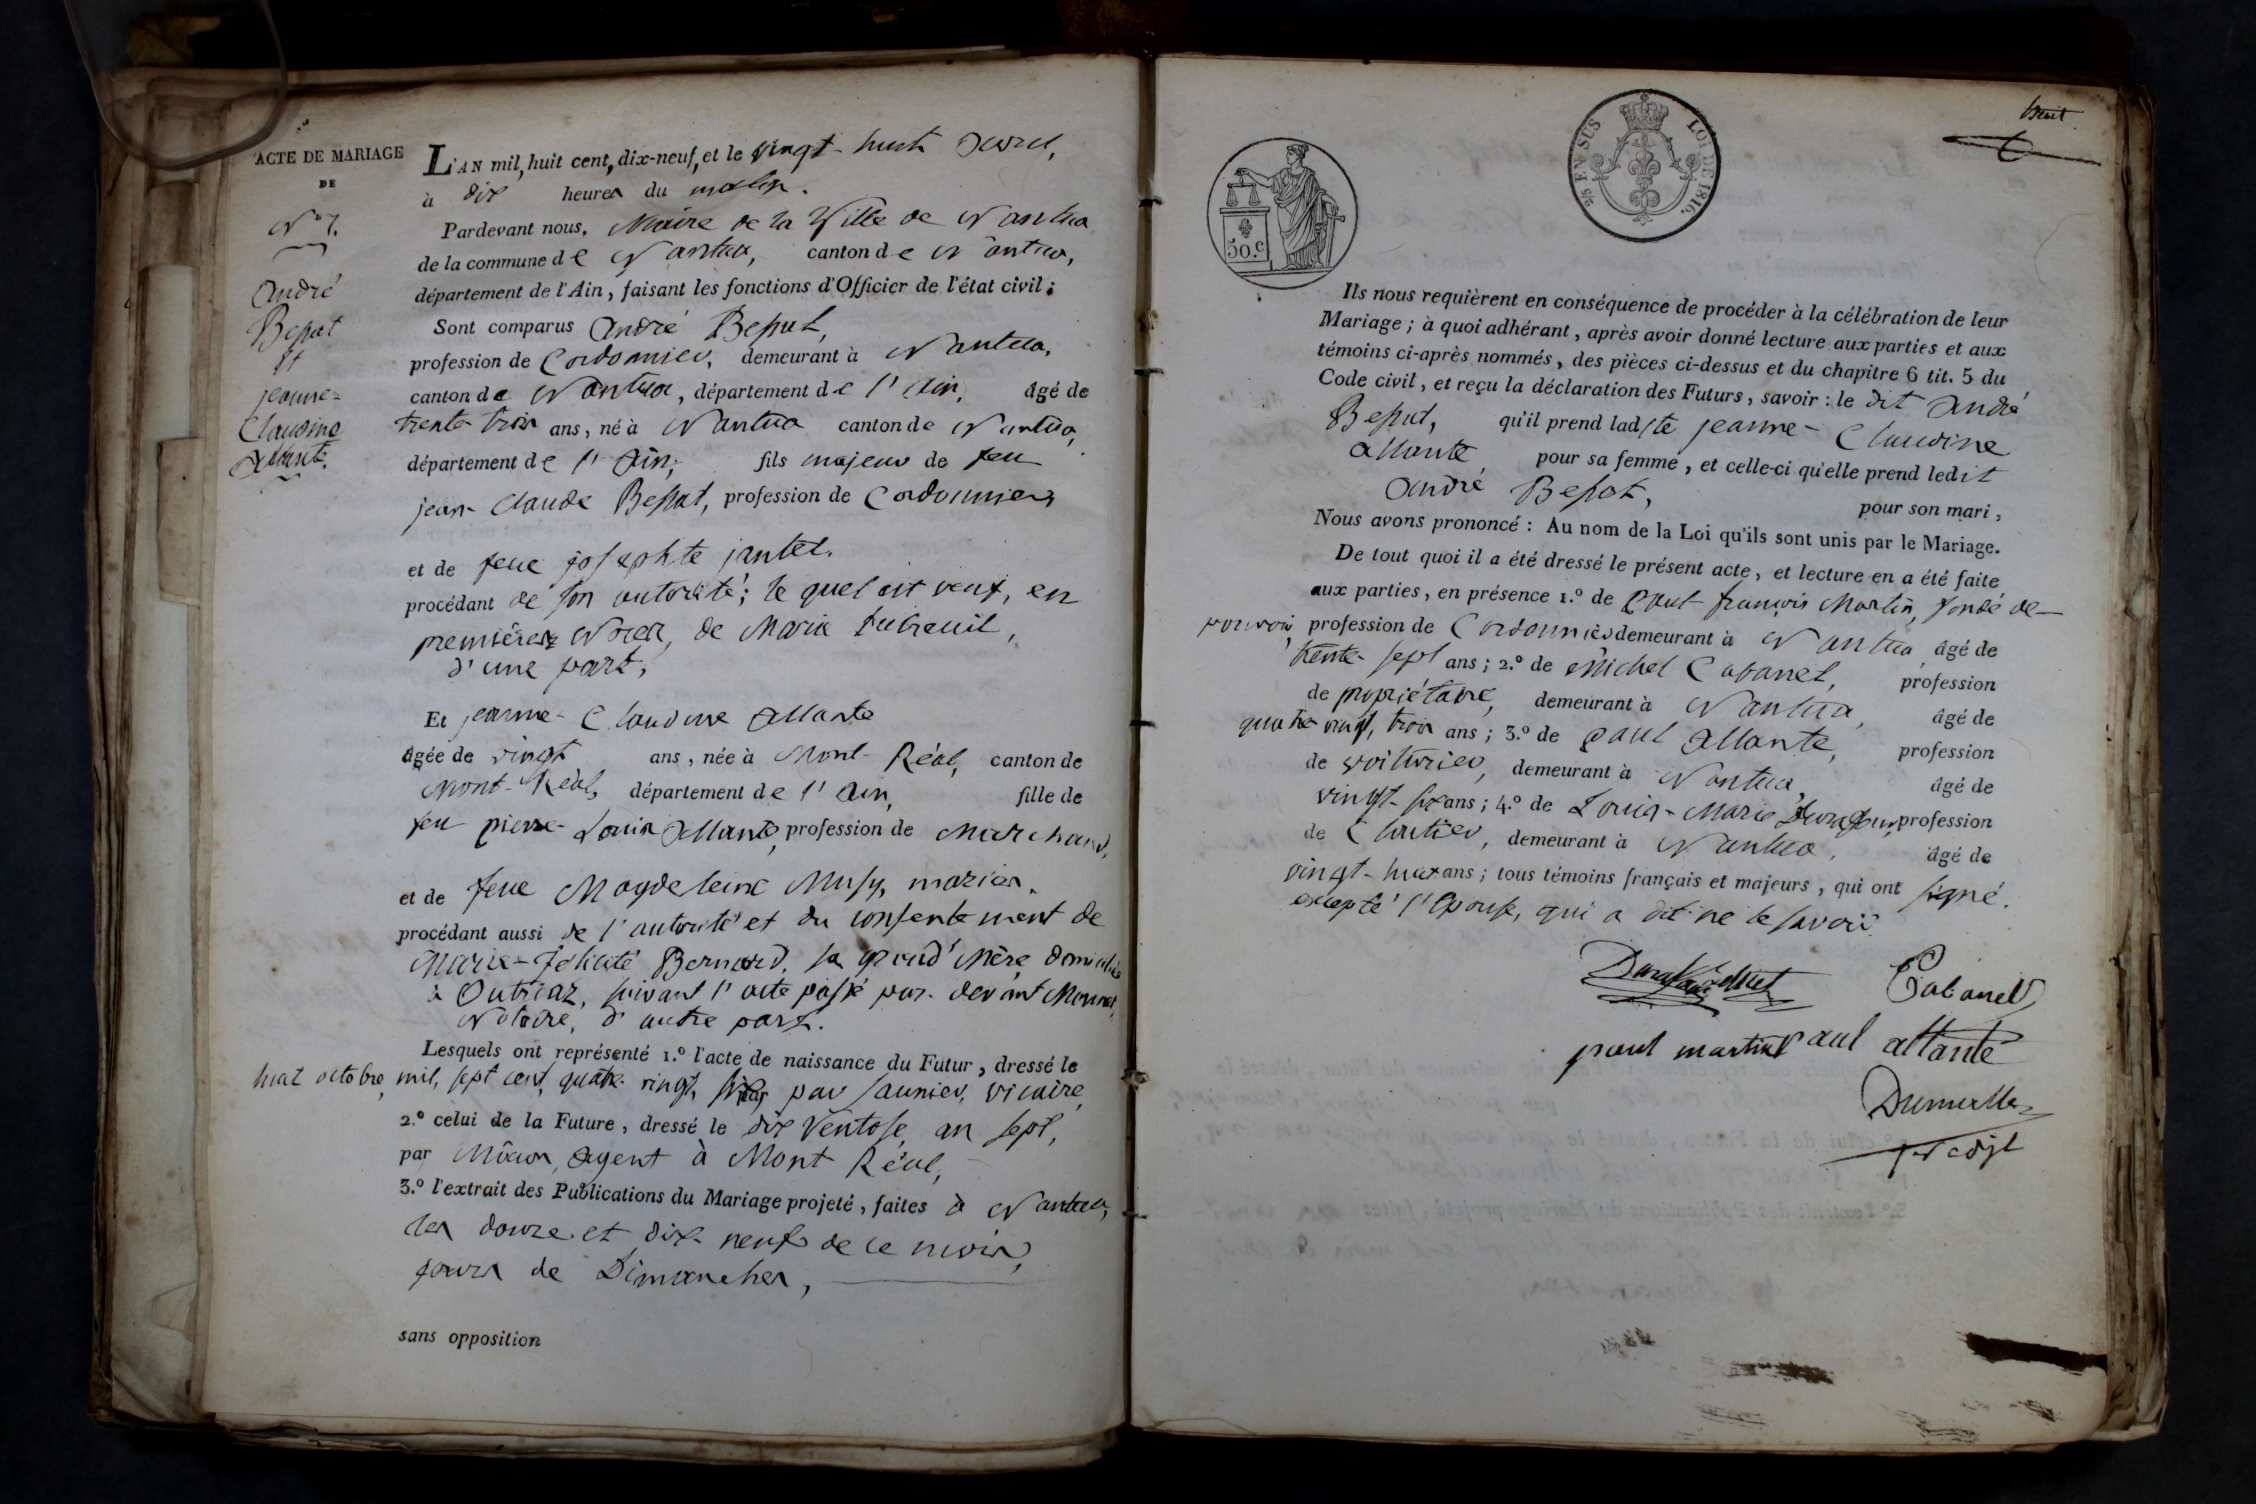 ACTE DE MARIAGE
DE
N° 7.
André
Bessat
Et
jeanne-
Claudine
Allante.
L'AN mil, huit cent, dix-neuf, et le vingt-huit avril,
à dix heures du matin.
Pardevant nous, Maire de la Ville de Nantua
de la commune de Nantua, canton de Nantua,
département de l'Ain, faisant les fonctions d'Officier de l'état civil;
Sont comparus André Bessat,
profession de Cordonnier, demeurant à Nantua,
canton de Nantua, département de l'Ain, âgé de
trente trois ans, né à Nantua canton de Nantua,
département de l'Ain; fils majeur de feu
jean-Claude Bessat, profession de Cordonnier,
et de feue josephte jantet.
procédant de son autorité; le quel est veuf, en
premières Noces, de Marie Dubreuil,
d'une part,
Et jeanne-Claudine Allante
âgée de vingt ans, née à Mont-Réal, canton de
Mont-Réal, département de l'Ain, fille de
feu pierre-Louis Allante, profession de Marchand,
et de feue Magdeleine Musy, mariés.
procédant aussi de l'autorité et du consentement de
Marie-Félicité Bernard, sa grand'Mère domiciliée
à Outriaz, suivant l'acte passé par-devant
Notaire, d'autre part.
Lesquels ont représenté 1.º l'acte de naissance du Futur, dressé le
huit octobre, mil, sept cent, quatre vingt, par Saunier, vicaire,
2.º celui de la Future, dressé le dix Ventose, an sept,
par agent à Mont Réal,
3.º l'extrait des Publications du Mariage projeté, faites à Nantua,
les douze et dix-neuf de ce mois,
jours de Dimanches,
sans opposition
huit
50.c
2/5 EN SUS
LOI DE 1816.
Ils nous requièrent en conséquence de procéder à la célébration de leur
Mariage; à quoi adhérant, après avoir donné lecture aux parties et aux
témoins ci-après nommés, des pièces ci-dessus et du chapitre 6 tit. 5 du
Code civil, et reçu la déclaration des Futurs, savoir: le dit André
Bessat, qu'il prend ladite jeanne-Claudine
Allante pour sa femme, et celle-ci qu'elle prend ledit
André Bessat, pour son mari,
Nous avons prononcé: Au nom de la Loi qu'ils sont unis par le Mariage.
De tout quoi il a été dressé le présent acte, et lecture en a été faite
aux parties, en présence 1.º de Paul-françois Martin, fondé de-
pouvoir profession de Cordonnier demeurant à Nantua, âgé de
trente-sept ans; 2.º de Michel Cabanet, profession
de propriétaire, demeurant à Nantua, âgé de
quatre vingt, trois ans; 3.º de paul Allante, profession
de voiturier, demeurant à Nantua, âgé de
vingt-six ans; 4.º de Louis-Marie profession
de Cloutier, demeurant à Nantua, âgé de
vingt-huit ans; tous témoins français et majeurs, qui ont signé.
excepté l'épouse, qui a dit ne le savoir.
Cabanet
paul martin
paul allante